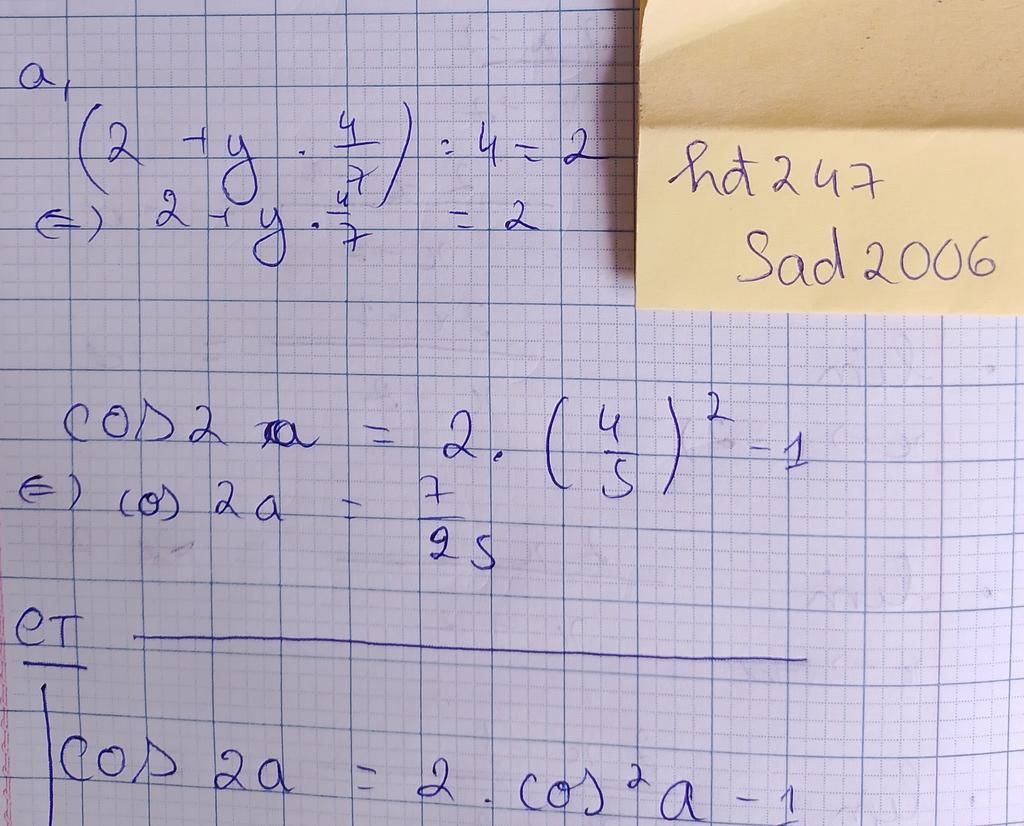 a,
(2 + y . 4/7) : 4 = 2
⇔ 2 + y . 4/7 = 2
hdt 247
Sad 2006
cos 2 a = 2. (4/5)² - 1
⇔ cos 2a = 7/25
CT
cos 2a = 2 . cos² a - 1